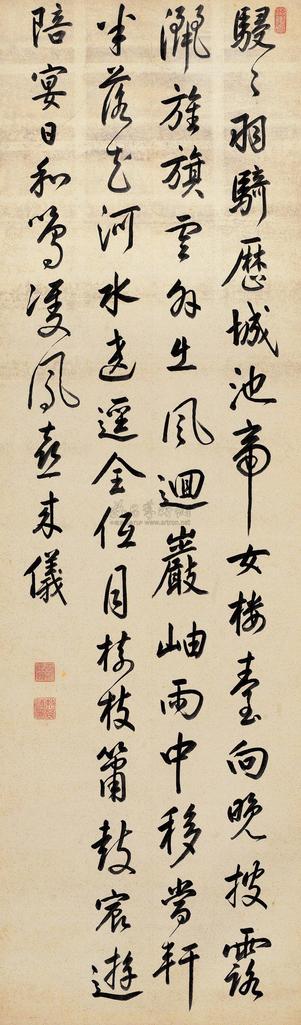 駸〻羽騎歷城池帝女樓臺向晚披露
灑旌旗雲外出風迴巖岫雨中移當軒
半落天河水遶逕全低月樹枝簫鼓宸遊
陪宴日和鳴雙鳳喜來儀